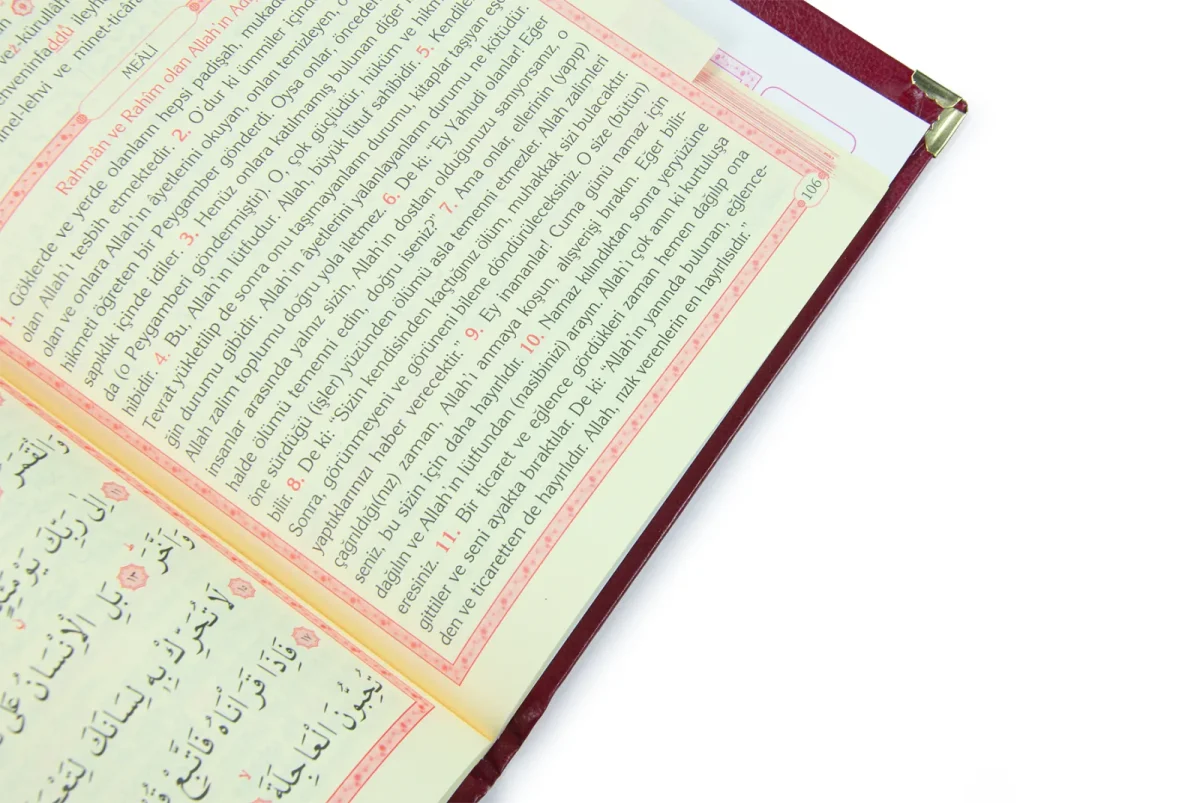 ileyh
minel-lehvi ve minet-ticâr
MEÂLİ
Rahmân ve Rahîm olan Allah'ın
1. Göklerde ve yerde olanların hepsi padişah,
olan Allah'ı tesbih etmektedir. 2. O'dur ki ümmiler
olan ve onlara Allah'ın âyetlerini okuyan, onları temizleyen,
hikmeti öğreten bir Peygamber gönderdi. Oysa onlar, önceden
sapıklık içinde idiler. 3. Henüz onlara katılmamış bulunan diğer
da (o Peygamberi göndermiştir). O, çok güçlüdür, hüküm ve
hibidir. 4. Bu, Allah'ın lütfudur. Allah, büyük lütuf sahibidir. 5.
Tevrat yükletilip de sonra onu taşımayanların durumu, kitaplar taşıyan
gin durumu gibidir. Allah'ın âyetlerini yalanlayanların durumu ne kötüdür.
Allah zalim toplumu doğru yola iletmez. 6. De ki: "Ey Yahudi olanlar! Eğer
insanlar arasında yalnız sizin, Allah'ın dostları olduğunuzu sanıyorsanız, o
halde ölümü temenni edin, doğru iseniz?" 7. Ama onlar, ellerinin (yapıp)
öne sürdüğü (işler) yüzünden ölümü asla temenni etmezler. Allah zalimleri
bilir. 8. De ki: "Sizin kendisinden kaçtığınız ölüm, muhakkak sizi bulacaktır.
Sonra, görünmeyeni ve görüneni bilene döndürüleceksiniz. O size (bütün)
yaptıklarınızı haber verecektir." 9. Ey inananlar! Cuma günü namaz için
çağrıldığı(nız) zaman, Allah'ı anmaya koşun, alışverişi bırakın. Eğer bilir-
seniz, bu sizin için daha hayırlıdır. 10. Namaz kılındıktan sonra yeryüzüne
dağılın ve Allah'ın lütfundan (nasibinizi) arayın. Allah'ı çok anın ki kurtuluşa
eresiniz. 11. Bir ticaret ve eğlence gördükleri zaman hemen dağılıp ona
gittiler ve seni ayakta bıraktılar. De ki: "Allah'ın yanında bulunan, eğlence-
den ve ticaretten de hayırlıdır. Allah, rızık verenlerin en hayırlısıdır."
106
وَالْقَمَرُ
إِلَى رَبِّكَ يَوْمَئِذٍ
وَأَخَّرَ ١٣ بَلِ الْإِنْسَانُ عَلَى
١٦ لَا تُحَرِّكْ بِهِ لِسَانَكَ لِتَعْجَلَ
١٧ فَإِذَا قَرَأْنَاهُ فَاتَّبِعْ
تُحِبُّونَ الْعَاجِلَةَ